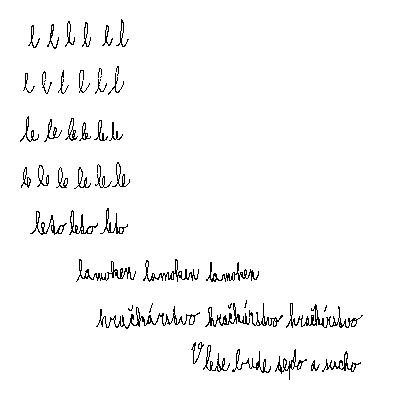 l l l l l l
l l l l l l
le le le le le le
le le le le le le
leto leto leto
lamoken lamoken lamoken
hračkárstvo hračkárstvo hračkárstvo
V lese bude teplo a sucho